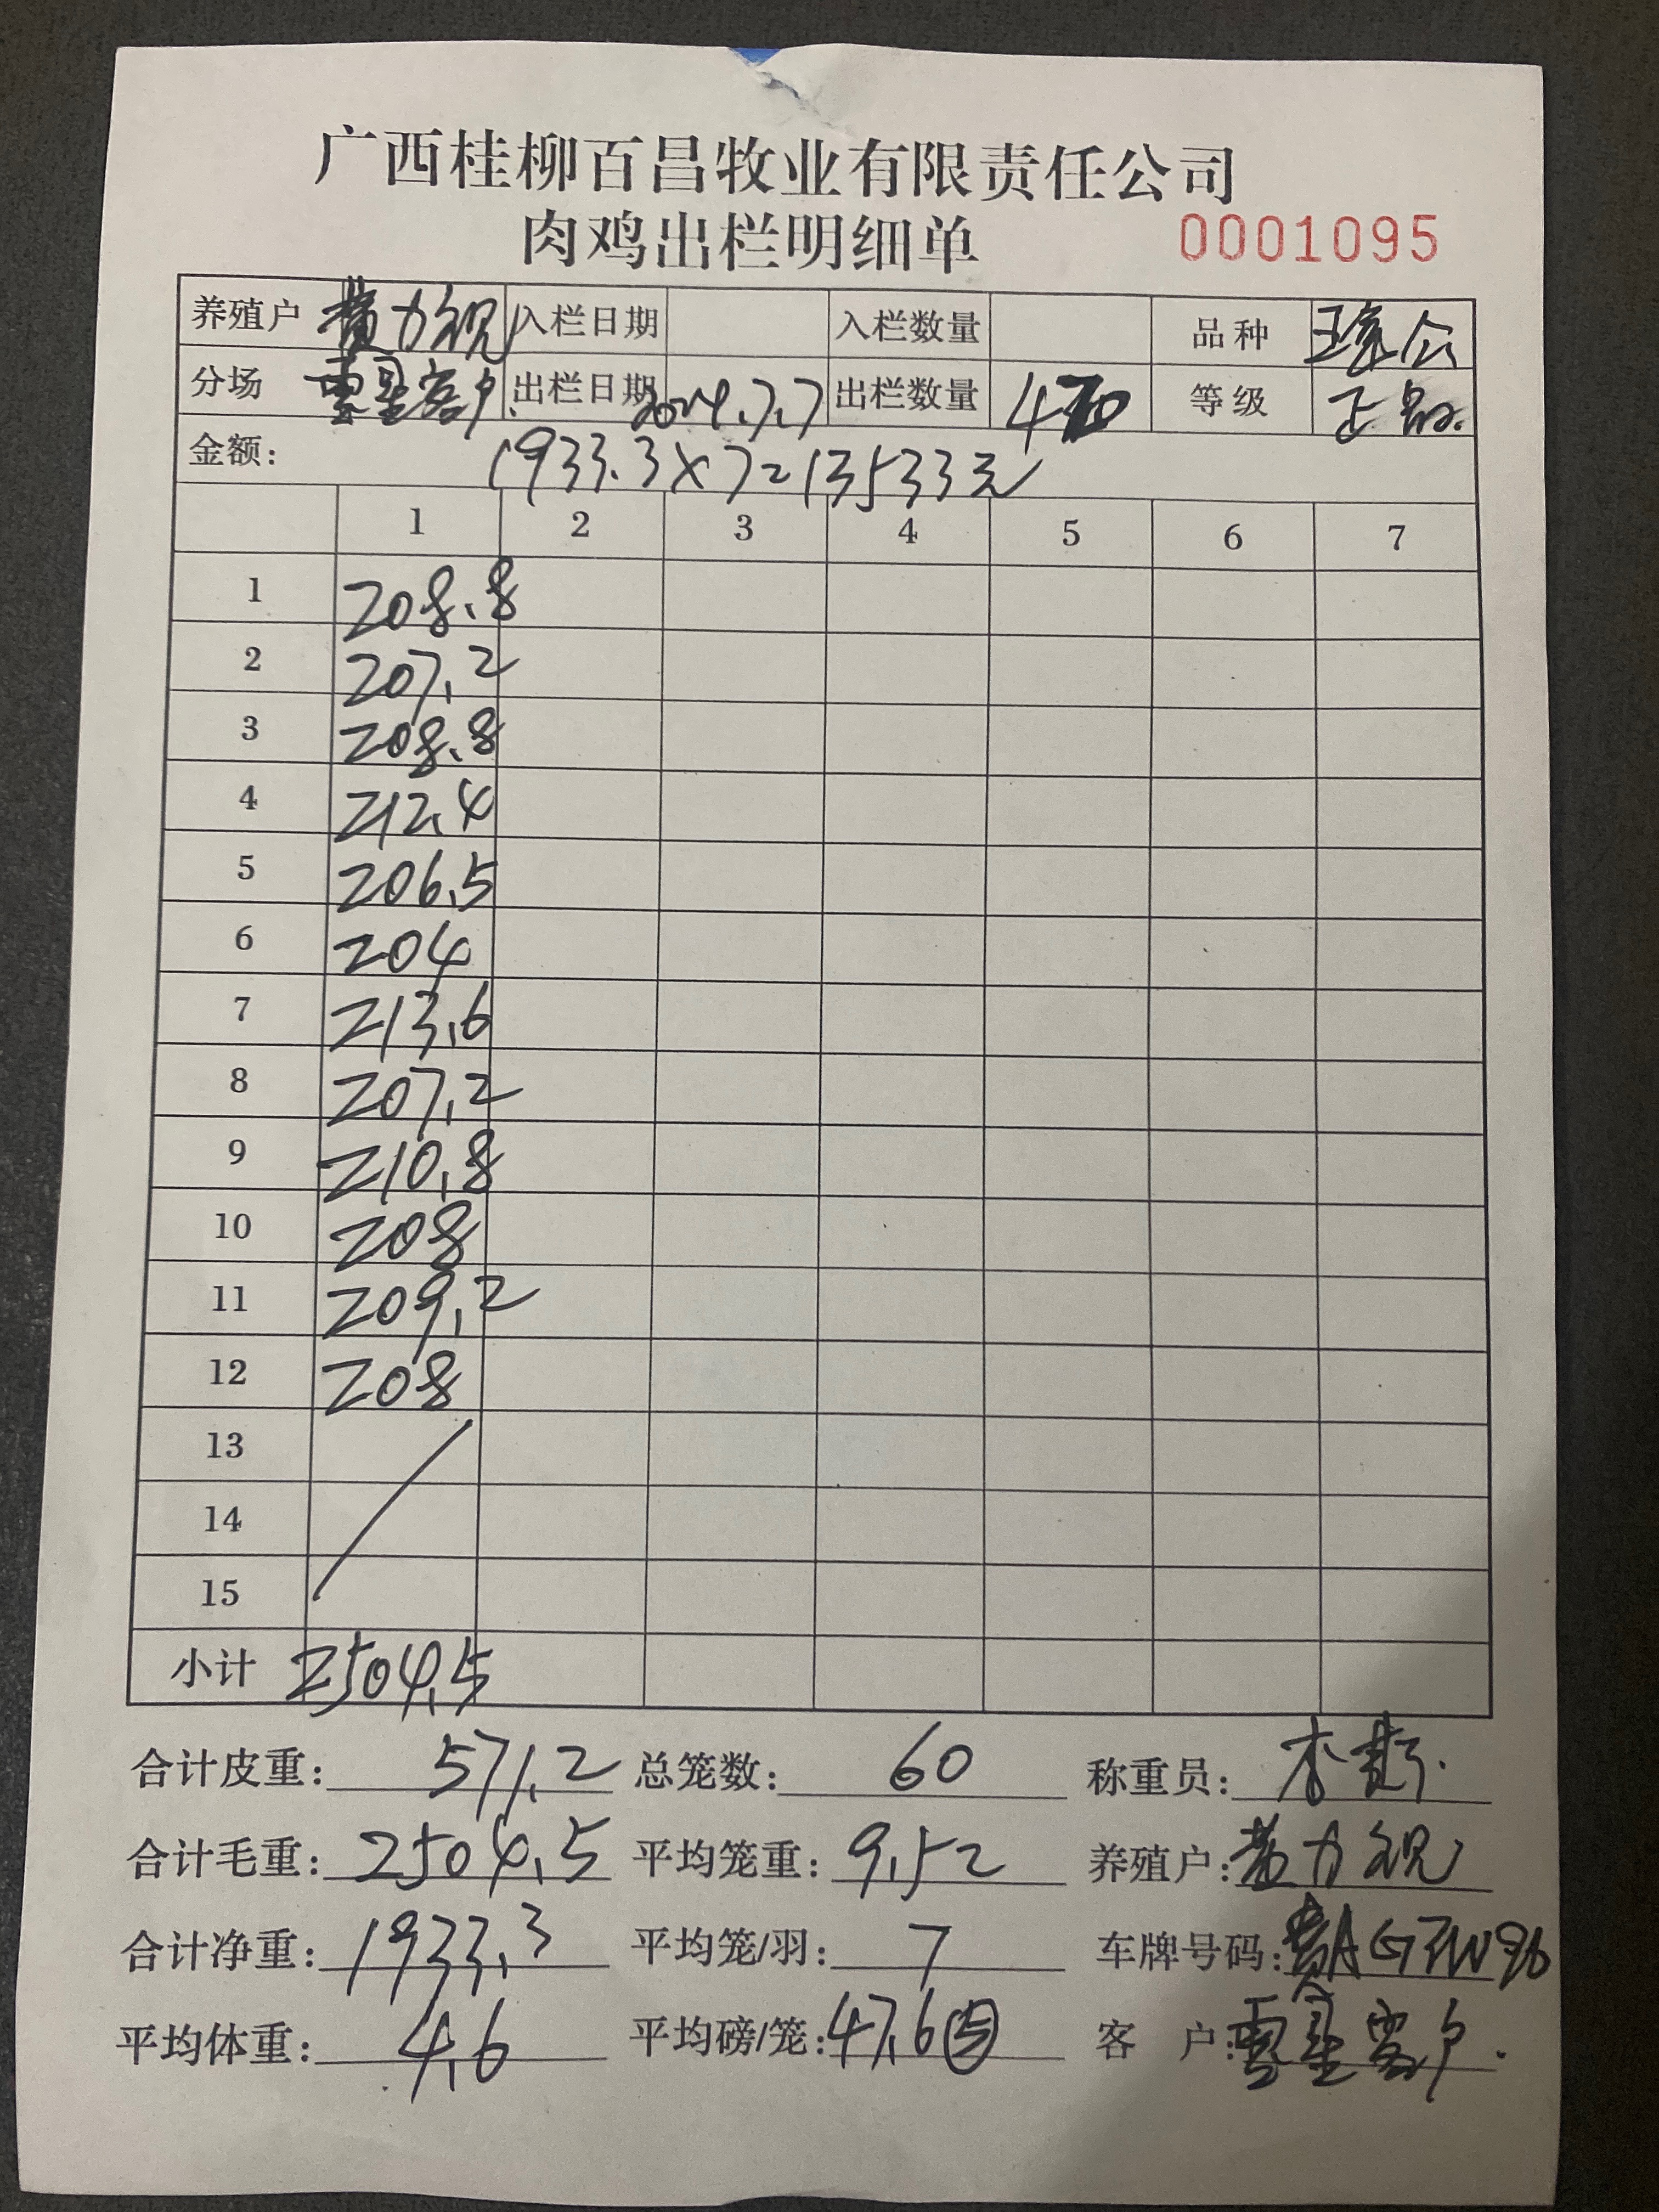 广西桂柳百昌牧业有限责任公司
肉鸡出栏明细单 0001095
养殖户 黄力 入栏日期 入栏数量 品种 公
分场 零星客户 出栏日期 2024.7.7 出栏数量 420 等级 正品
金额: 1933.3×7=13533元
1 2 3 4 5 6 7
1 208.8
2 207.2
3 208.8
4 212.4
5 206.5
6 204
7 213.6
8 207.2
9 210.8
10 208
11 209.2
12 208
13
14
15
小计 2504.5
合计皮重: 571.2 总笼数: 60 称重员:
合计毛重: 2504.5 平均笼重: 9.52 养殖户: 黄力
合计净重: 1933.3 平均笼/羽: 7 车牌号码:
平均体重: 4.6 平均磅/笼: 47.6⑤ 客户: 零星客户